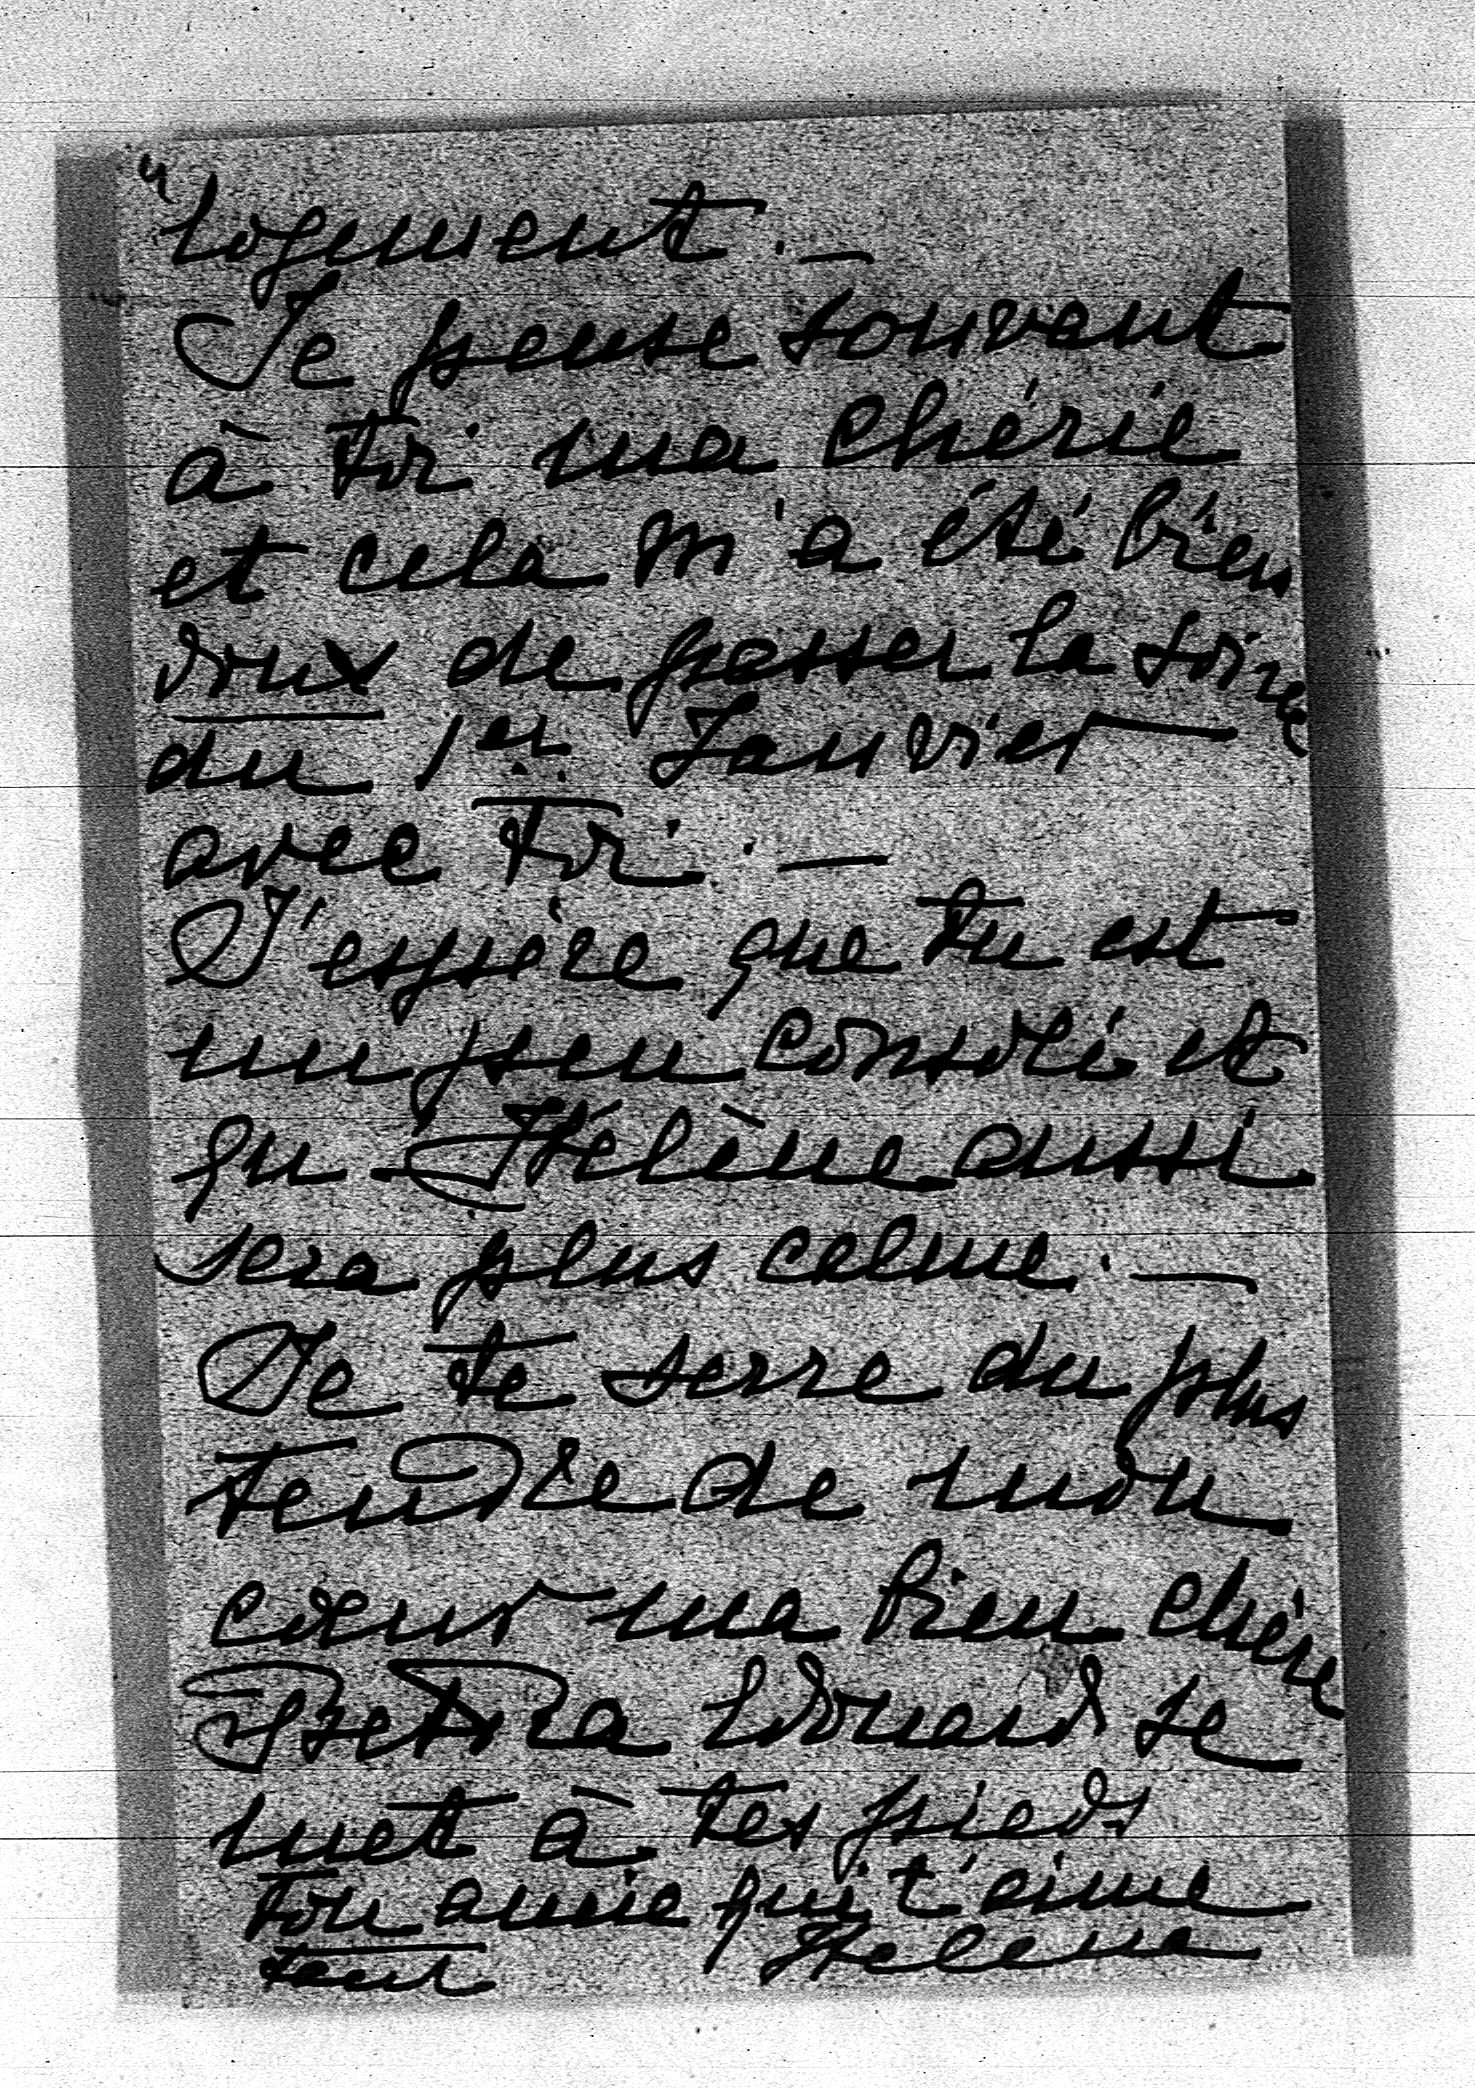 "Logement. —
Je pense souvent
à toi ma chérie
et cela m'a été bien
doux de passer la soirée
du 1er Janvier
avec toi. —
J'espère que tu est
un peu consolé et
qu Hélène aussi
sera plus calme. —
Je te serre du plus
tendre de mon
cœur ma bien chère
Petra Edouard se
met à tes pieds
ton amie qui t'aime
tant Helena